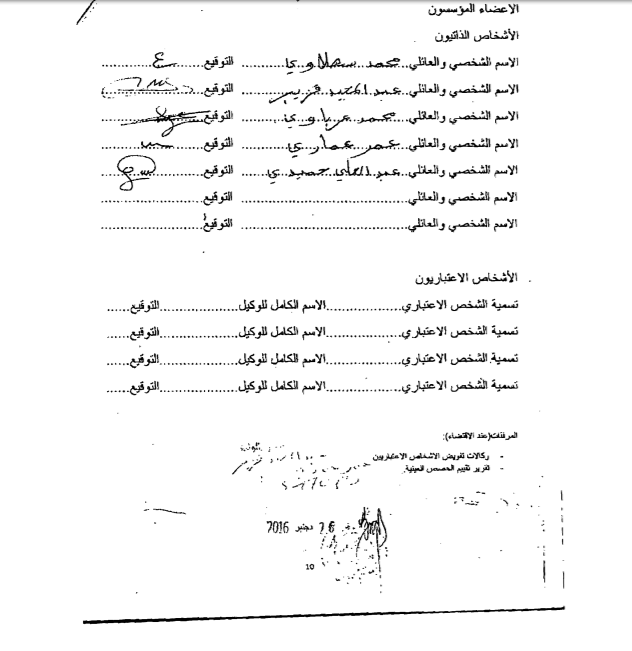 الاعضاء المؤسسون
الأشخاص الذاتيون
الاسم الشخصي والعائلي..محمد سهلاوي............ التوقيع..............
الاسم الشخصي والعائلي..عبد المجيد............ التوقيع..............
الاسم الشخصي والعائلي..محمد عرباوي............ التوقيع..............
الاسم الشخصي والعائلي..عمر عماري............ التوقيع..............
الاسم الشخصي والعائلي..عبد العالي حميدي............ التوقيع..............
الاسم الشخصي والعائلي........................................ التوقيع........................
الاسم الشخصي والعائلي........................................ التوقيع........................
الأشخاص الاعتباريون
تسمية الشخص الاعتباري..................الاسم الكامل للوكيل...................التوقيع......
تسمية الشخص الاعتباري..................الاسم الكامل للوكيل...................التوقيع......
تسمية الشخص الاعتباري..................الاسم الكامل للوكيل...................التوقيع......
تسمية الشخص الاعتباري..................الاسم الكامل للوكيل...................التوقيع......
المرفقات(عند الاقتضاء):
- وكالات تفويض الاشخاص الاعتباريين
- تقرير تقييم الحصص العينية
2 6 دجنبر 2016
10